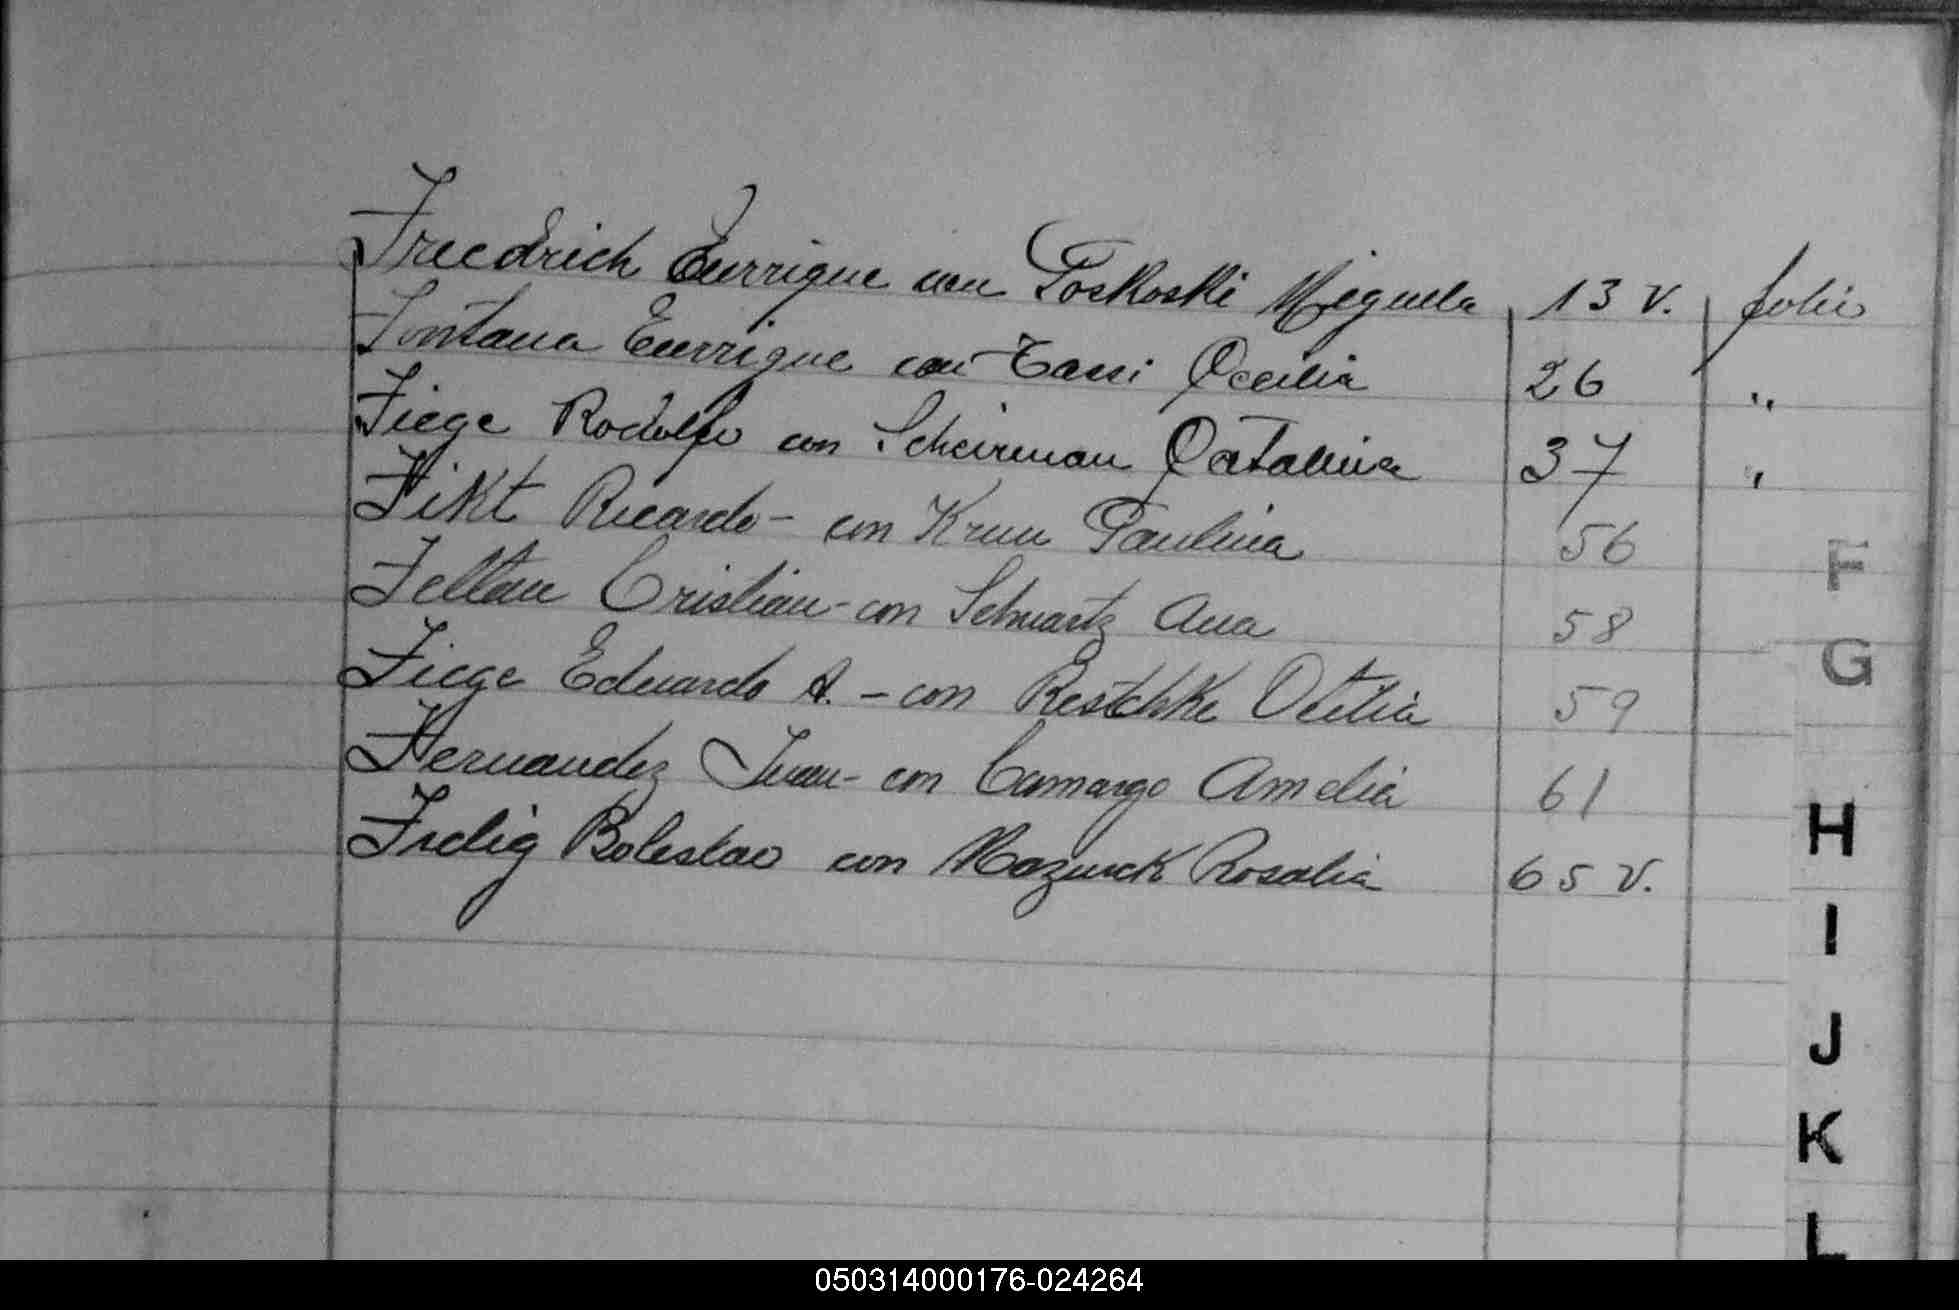 Freedrich Enrrique con Poskoski Miguela 13 v. folio
Fontana Enrrique con Tassi Cecilia 26 "
Fiege Rodolfo con Scheirman Catalina 37 "
Fikt Ricardo - con Krun Paulina 56
Feltan Cristian - con Schwartz Ana 58
F
G
Fiege Eduardo A. - con Restchke Otilia 59
Fernandez Juan - con Camargo Amelia 61
Fidelig Boleslao con Mazurek Rosalia 65 v.
H
I
J
K
L
050314000176-024264